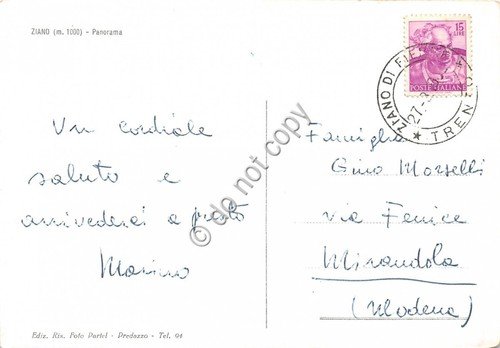 ZIANO (m. 1000) - Panorama
Un cordiale
saluto e
arrivederci a presto
Marino
Ediz. Ris. Foto Portel - Predazzo - Tel. 94
15
LIRE
POSTE ITALIANE
ZIANO DI FIEMME
27.8
★ TRENTO
Famiglia
Gino Morselli
via Fenice
Mirandola
(Modena)
do not copy